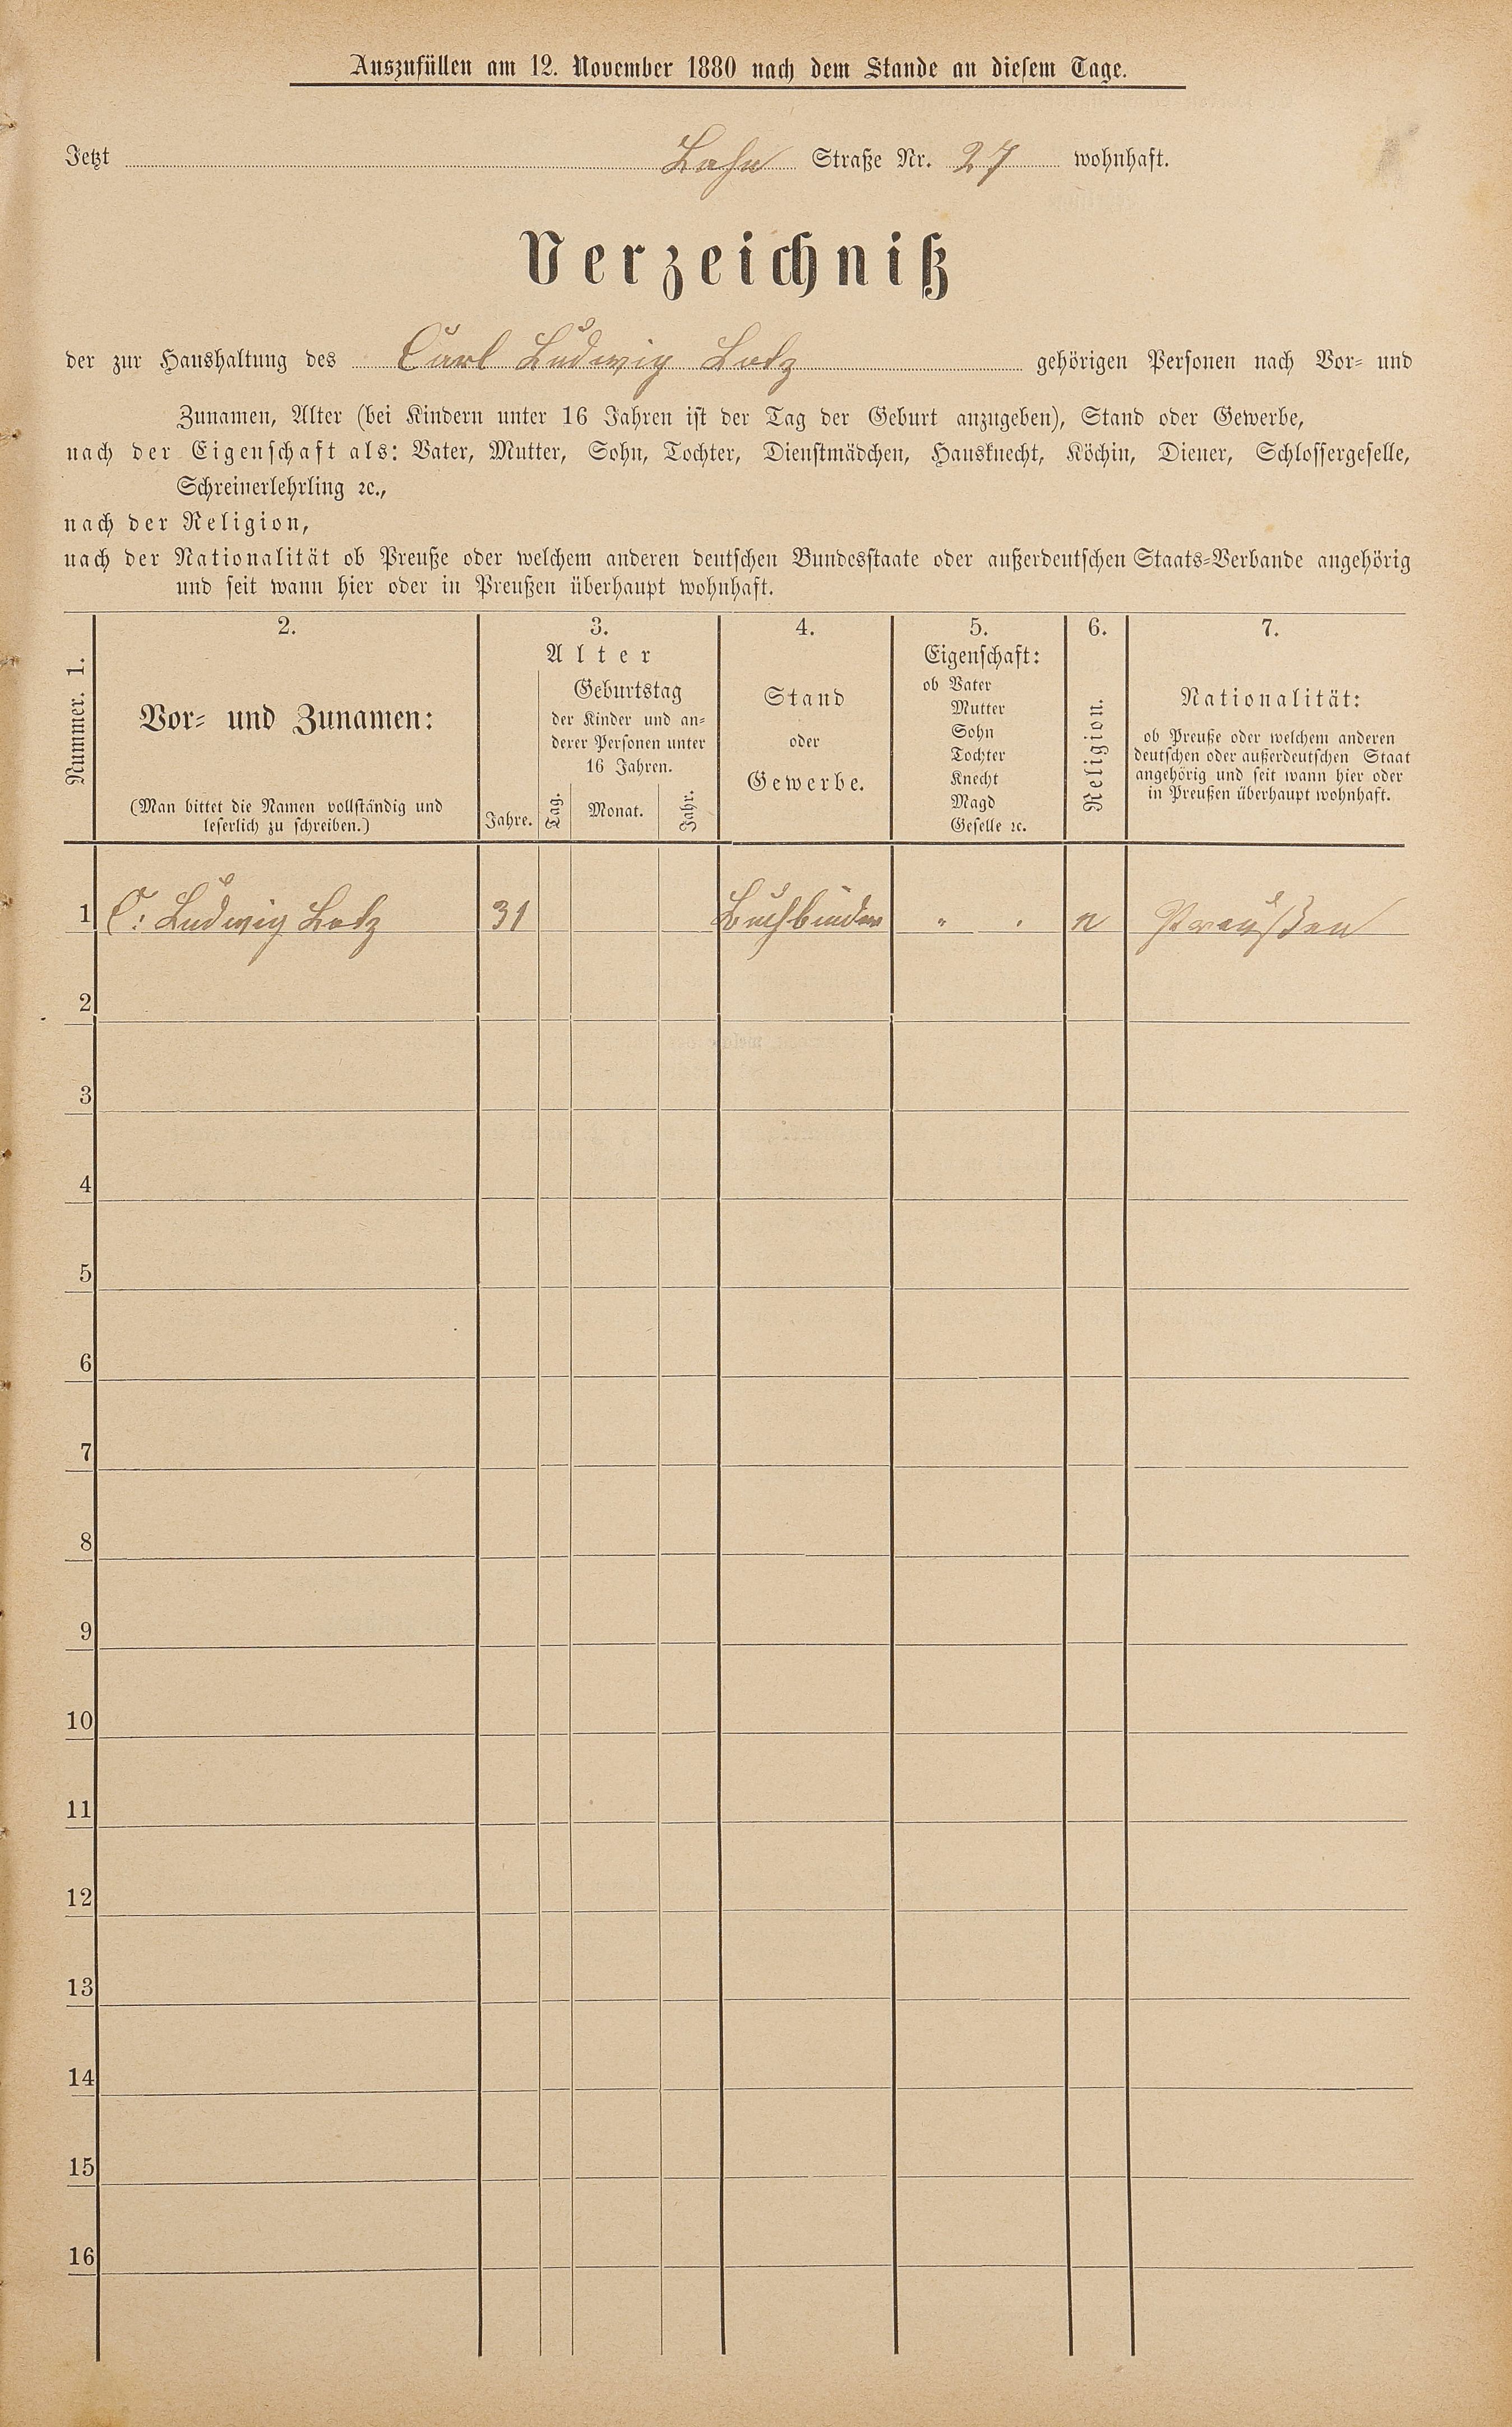 Auszufüllen am 12. November 1880 nach dem Stande an diesem Tage.
Jetzt Lahn Straße Nr. 27 wohnhaft.
Verzeichniß
der zur Haushaltung des Carl Ludwig Lotz gehörigen Personen nach Vor- und
Zunamen, Alter (bei Kindern unter 16 Jahren ist der Tag der Geburt anzugeben), Stand oder Gewerbe,
nach der Eigenschaft als: Vater, Mutter, Sohn, Tochter, Dienstmädchen, Hausknecht, Köchin, Diener, Schlossergeselle,
Schreinerlehrling ꝛc.,
nach der Religion,
nach der Nationalität ob Preuße oder welchem anderen deutschen Bundesstaate oder außerdeutschen Staats-Verbande angehörig
und seit wann hier oder in Preußen überhaupt wohnhaft.
Nummer. 1.
2.
Vor- und Zunamen:
(Man bittet die Namen vollständig und
leserlich zu schreiben.)
3.
Alter
Jahre.
Geburtstag
der Kinder und an-
derer Personen unter
16 Jahren.
Tag.
Monat.
Jahr.
4.
Stand
oder
Gewerbe.
5.
Eigenschaft:
ob Vater
Mutter
Sohn
Tochter
Knecht
Magd
Geselle ꝛc.
6.
Religion.
7.
Nationalität:
ob Preuße oder welchem anderen
deutschen oder außerdeutschen Staat
angehörig und seit wann hier oder
in Preußen überhaupt wohnhaft.
1 C: Ludwig Lotz 31 Buchbinder " " Preußen
2
3
4
5
6
7
8
9
10
11
12
13
14
15
16